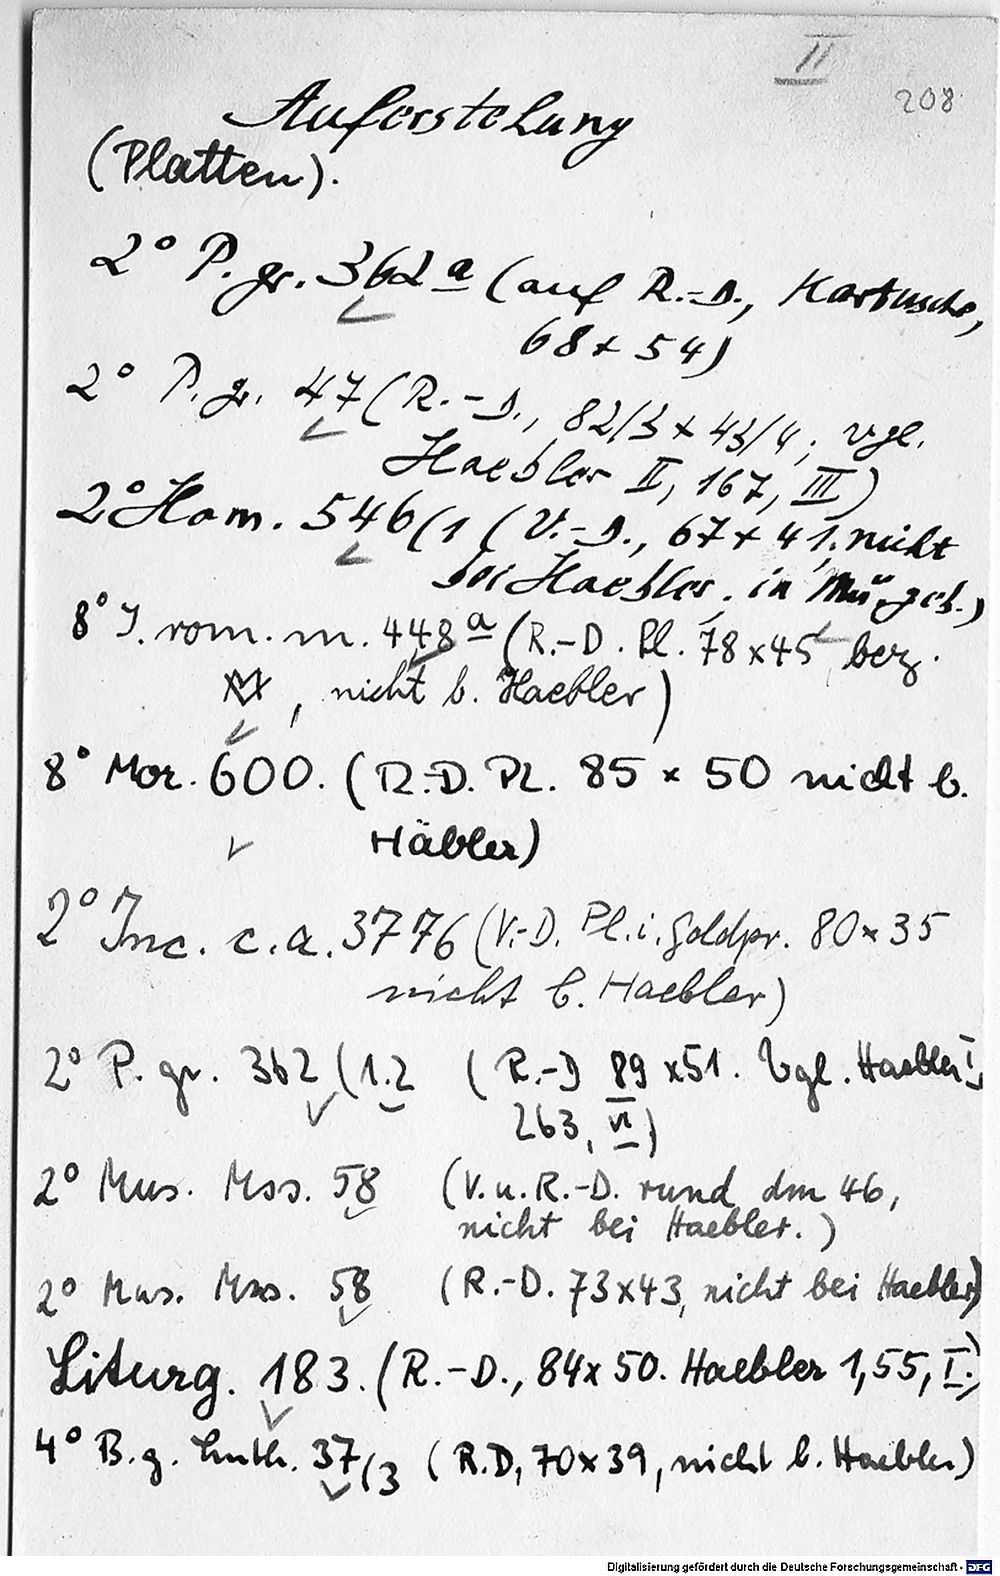 II
208
Auferstehung
(Platten).
2° P. gr. 362 a (auf R.-D., Kartusche,
68 x 54)
2° P. gr. 47 (R.-D., 82/3 x 43/4, vgl.
Haebler II, 167, III)
2° Hom. 546 (1 (V.-D., 67 x 41, nicht
bei Haebler, in Mü. geb.)
8° J. rom. m. 448 a (R.-D. Pl. 78 x 45 bez.
, nicht b. Haebler)
8° Mor. 600. (R.-D. Pl. 85 x 50 nicht b.
Häbler)
2° Inc. c. a. 3776 (V.-D. Pl. i. Goldpr. 80 x 35
nicht b. Haebler)
2° P. gr. 362 (1.2 (R.-D 89 x 51. Vgl. Haebler I,
263, VI)
2° Mus. Mss. 58 (V. u. R.-D. rund dm 46,
nicht bei Haebler.)
2° Mus. Mss. 58 (R.-D. 73 x 43, nicht bei Haebler)
Liturg. 183. (R.-D., 84 x 50. Haebler 1,55, I.)
4° B. g. luth. 37/3 (R.D, 70 x 39, nicht b. Haebler)
Digitalisierung gefördert durch die Deutsche Forschungsgemeinschaft - DFG